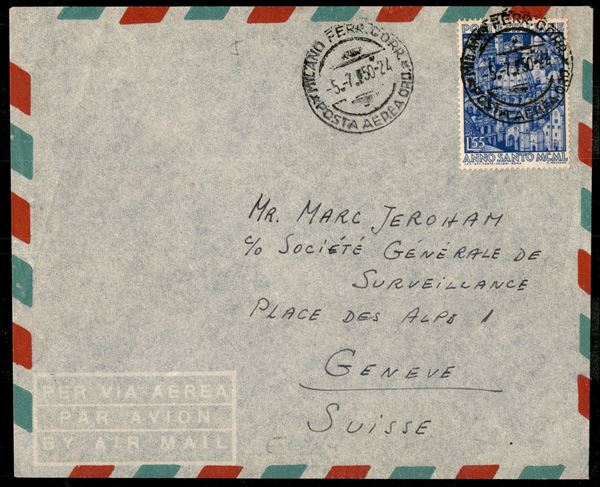 MILANO FERR. CORR.
5.-7.50-24
POSTA AEREA ORD.
MILANO FERR. CORR.
5.-7.50-24
POSTA AEREA ORD
PO
L 55
ANNO SANTO MCML
MR. MARC JEROHAM
c/o SOCIÉTÉ GÉNÉRALE DE
SURVEILLANCE
PLACE DES ALPS 1
GENEVE
SUISSE
PER VIA AEREA
PAR AVION
BY AIR MAIL